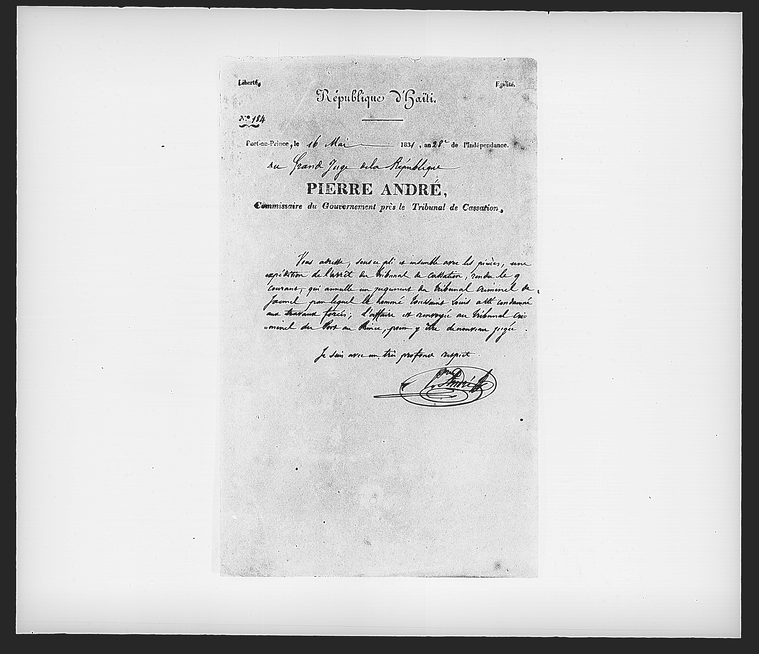 Liberté, Egalité.
République d'Haïti.
N.º 184
Port-au-Prince, le 16 Mai 1831, an 28e de l'Indépendance.
au Grand Juge de la République
PIERRE ANDRÉ,
Commissaire du Gouvernement près le Tribunal de Cassation,
Vous adresse, sous ce pli et ensemble avec les pièces, une
expédition de l'arrêt du tribunal de cassation, rendu le 9
courant, qui annulle un jugement du tribunal criminel de
Jacmel par lequel le nommé Toussaint Louis a été condamné
aux travaux forcés; l'affaire est renvoyée au tribunal cri
-minel du Port au Prince, pour y être de nouveau jugée.
Je suis avec un très profond respect
P.re André